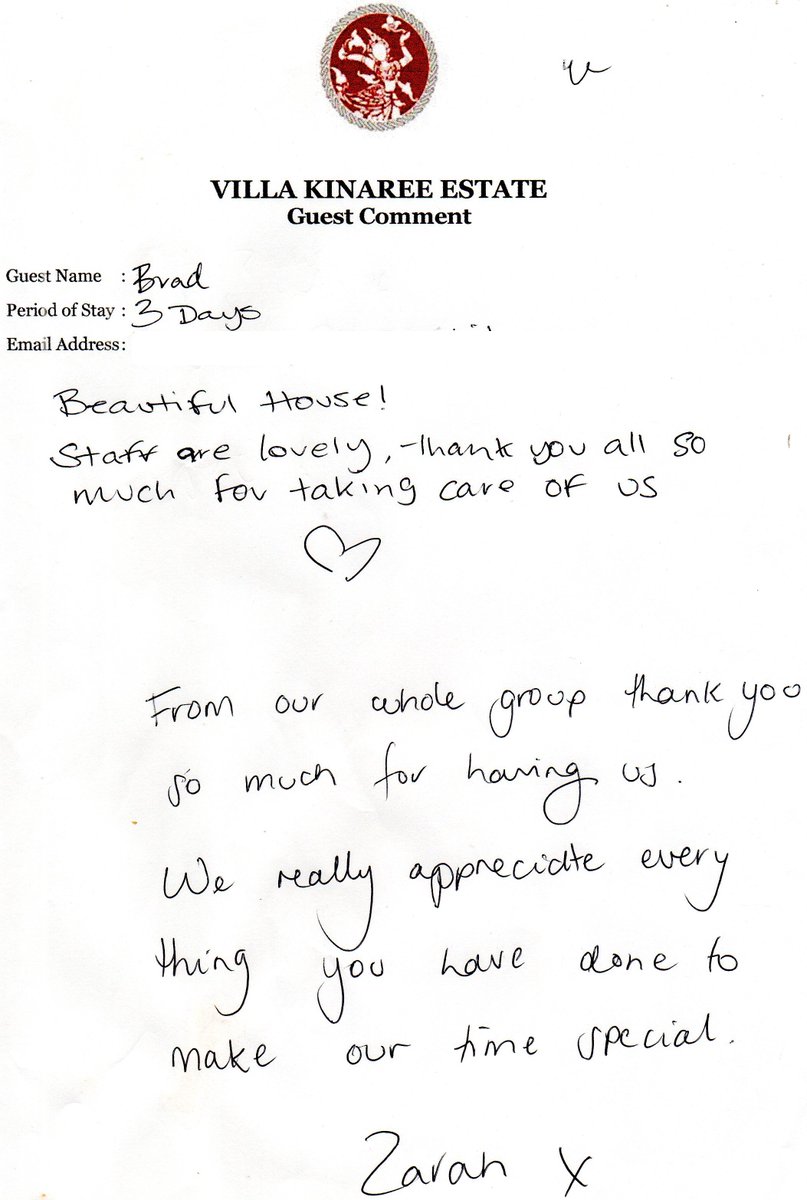 VILLA KINAREE ESTATE
Guest Comment
Guest Name : Brad
Period of Stay : 3 Days
Email Address:
Beautiful House!
Staff are lovely, thank you all so
much for taking care of us
From our whole group thank you
so much for having us.
We really appreciate every
thing you have done to
make our time special.
Zarah X